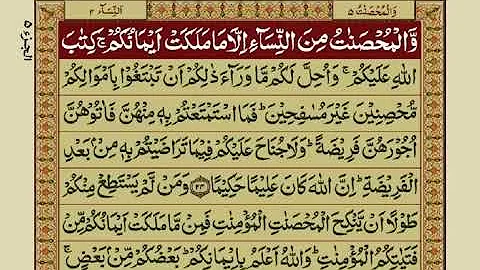 وَالْمُحْصَنٰتُ ۵
اَلنِّسَآء ۴
وَّالْمُحْصَنٰتُ مِنَ النِّسَآءِ اِلَّا مَا مَلَكَتْ اَيْمَانُكُمْ ۚ كِتٰبَ
اللّٰهِ عَلَيْكُمْ ۚ وَاُحِلَّ لَكُمْ مَّا وَرَآءَ ذٰلِكُمْ اَنْ تَبْتَغُوْا بِاَمْوَالِكُمْ
مُّحْصِنِيْنَ غَيْرَ مُسٰفِحِيْنَ ؕ فَمَا اسْتَمْتَعْتُمْ بِهٖ مِنْهُنَّ فَاٰتُوْهُنَّ
اُجُوْرَهُنَّ فَرِيْضَةً ؕ وَلَا جُنَاحَ عَلَيْكُمْ فِيْمَا تَرٰضَيْتُمْ بِهٖ مِنْۢ بَعْدِ
الْفَرِيْضَةِ ؕ اِنَّ اللّٰهَ كَانَ عَلِيْمًا حَكِيْمًا ۝۲۴ وَمَنْ لَّمْ يَسْتَطِعْ مِنْكُمْ
طَوْلًا اَنْ يَّنْكِحَ الْمُحْصَنٰتِ الْمُؤْمِنٰتِ فَمِنْ مَّا مَلَكَتْ اَيْمَانُكُمْ مِّنْ
فَتَيٰتِكُمُ الْمُؤْمِنٰتِ ؕ وَاللّٰهُ اَعْلَمُ بِاِيْمَانِكُمْ ؕ بَعْضُكُمْ مِّنْۢ بَعْضٍ ۚ
الجزء ۵